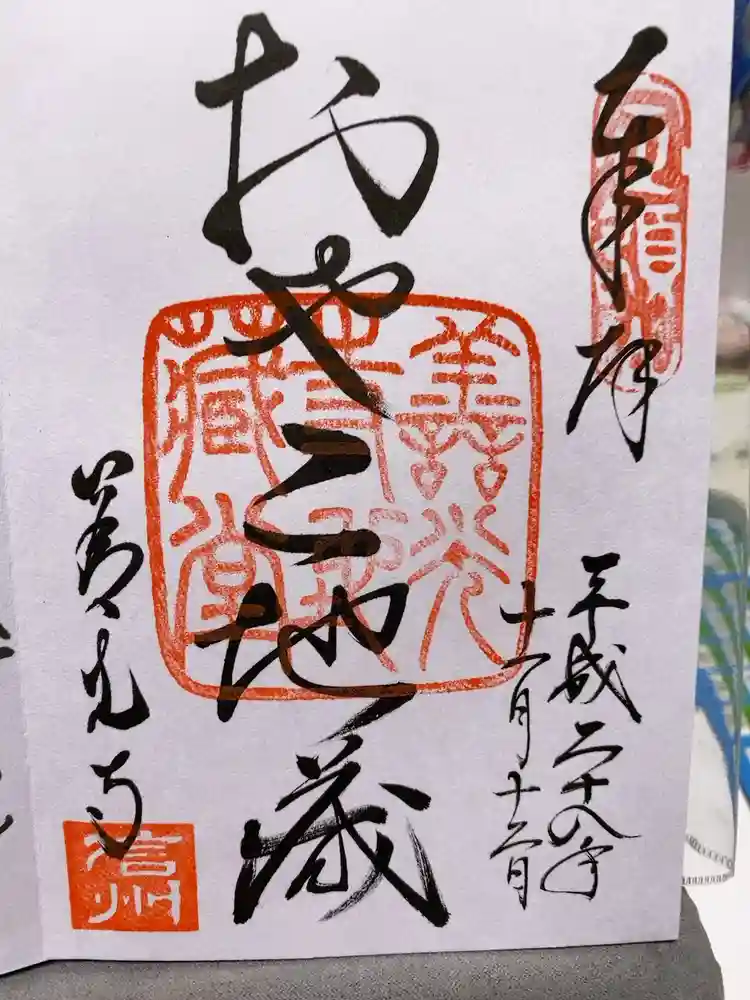 奉拝
平成二十八年
十一月十二日
おやこ地蔵
善光寺
善光
寺地
藏堂
信州